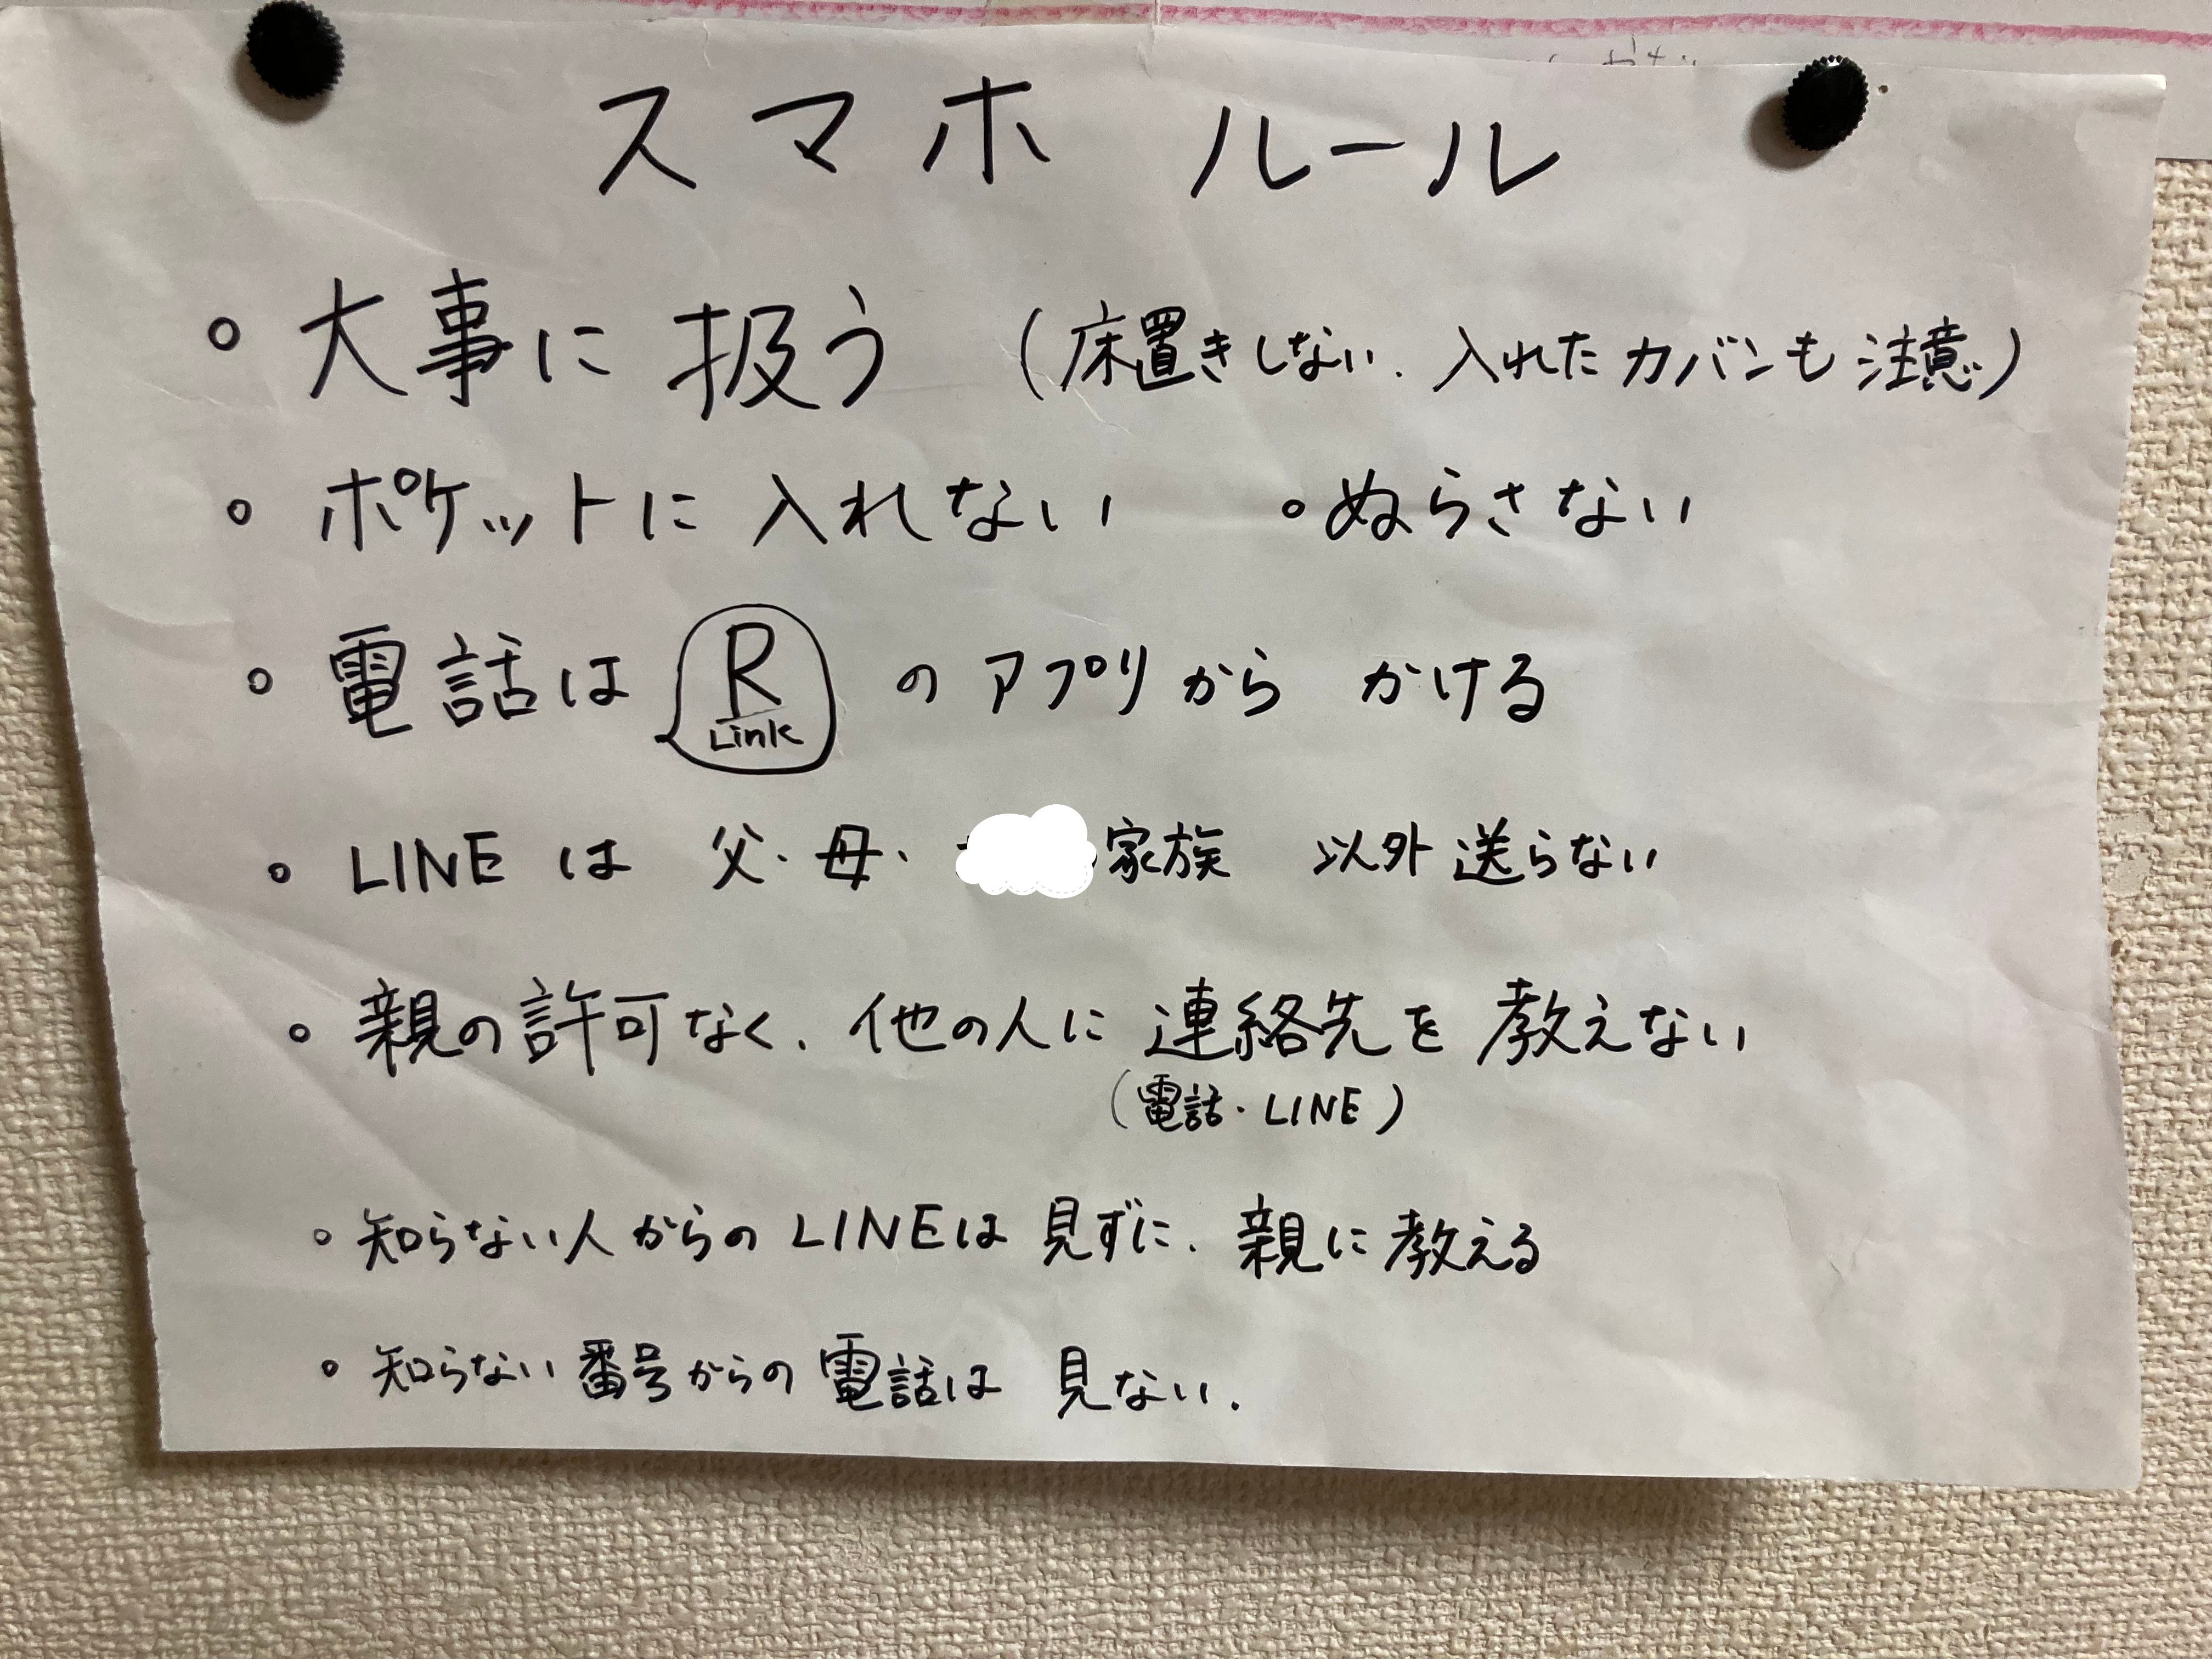 スマホ ルール
○ 大事に 扱う (床置きしない. 入れた カバンも 注意)
○ ポケットに 入れない ○ ぬらさない
○ 電話は R Link の アプリから かける
○ LINE は 父・母・ 家族 以外 送らない
○ 親の 許可なく、他の人に 連絡先を 教えない
(電話・LINE)
○ 知らない人からの LINEは 見ずに、親に教える
○ 知らない 番号からの 電話は 見ない.